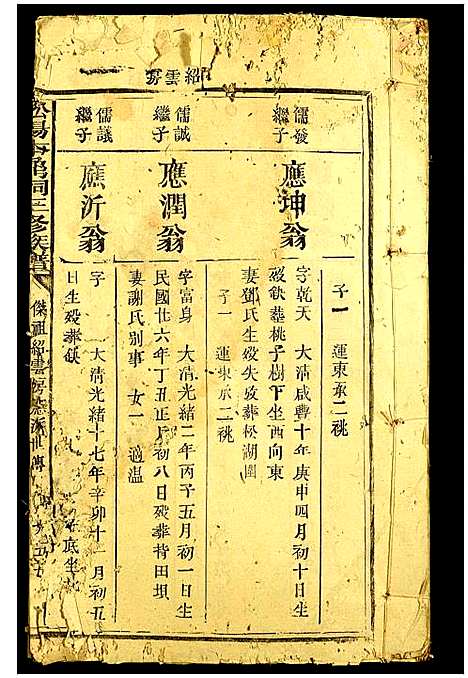 紹雲房
子一 運東承二祧
儒發
繼子
應坤翁
字乾天 大清咸豐十年庚申四月初十日生
歿缺葬桃子樹下坐西向東
妻鄧氏生歿失攷葬松湖圍
子一 運東承二祧
儒誠
繼子
應潤翁
字富身 大清光緒二年丙子五月初一日生
民國廿六年丁丑正月初八日歿葬持田垻
妻謝氏別事 女一 適温
儒議
繼子
應沂翁
字 大清光緒十七年辛卯十一月初五
日生歿葬缺
三修族譜
傑祖紹雲房
世傳